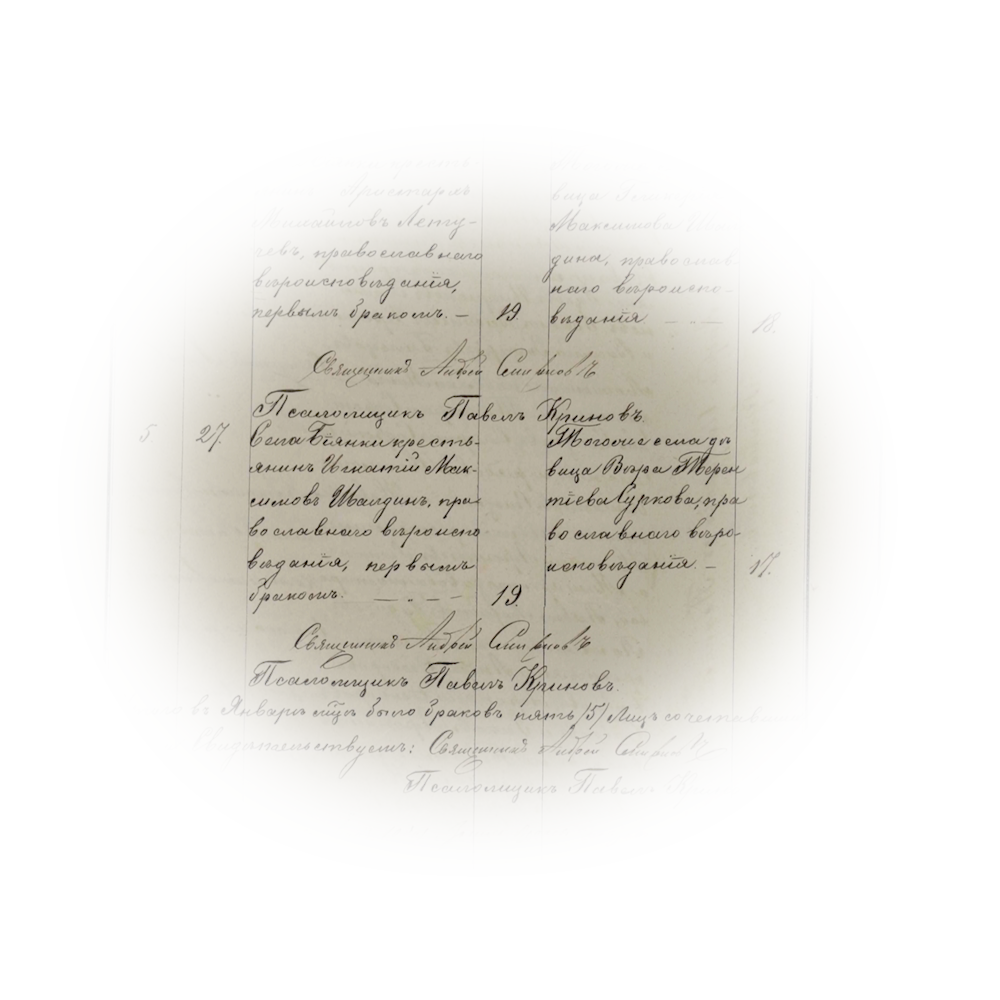 вица
Михайловъ Лету-
Максимова
чевъ, православнаго
дина, православ
вѣроисповѣданія,
наго вѣроиспо-
первымъ бракомъ. — 19.
вѣданія — „ — 18.
Священникъ Андрей Смирновъ
Псаломщикъ Павелъ Криновъ.
5 27. Села Біянки кресть-
янинъ Игнатій Мак-
симовъ Шалдинъ, пра
вославнаго вѣроиспо
вѣданія, первымъ
бракомъ. — „ — — 19.
Тогоже села дѣ
вица Вѣра Терен
тіева Суркова, пра
вославнаго вѣро-
исповѣданія. — 17.
Священникъ Андрей Смирновъ
Псаломщикъ Павелъ Криновъ.
въ Январѣ мцѣ было браковъ пять /5/ Лицъ
Свидѣтельствуемъ: Священникъ Андрей Смирновъ
Псаломщикъ Павелъ